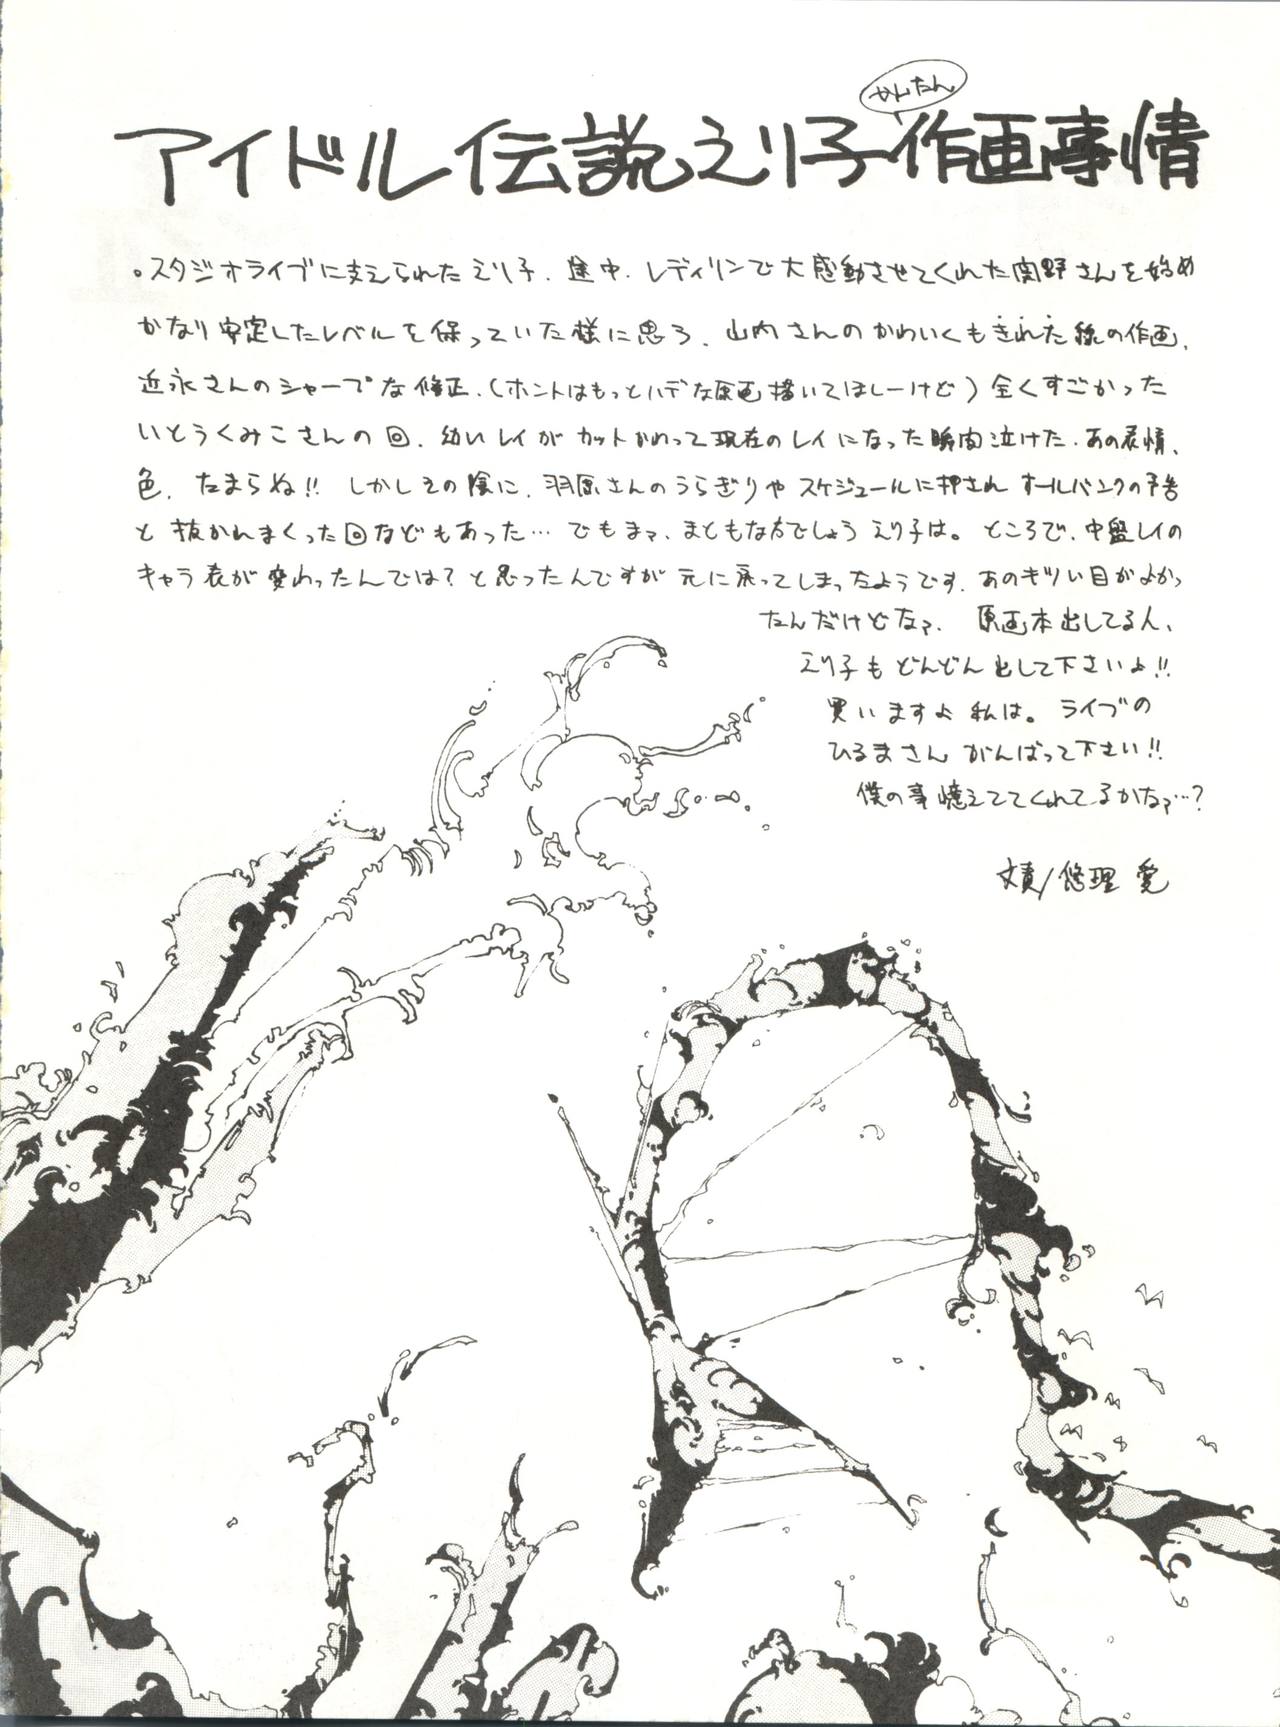 かんたん
アイドル伝説えり子作画事情
。スタジオライブに支えられたえり子、途中、レディリンで大感動させてくれた関野さんを始め
かなり安定したレベルを保っていた様に思う、山内さんのかわいくもきれた線の作画、
近永さんのシャープな修正、(ホントはもっとハデな原画描いてほしーけど)全くすごかった
いとうくみこさんの回、幼いレイがカットかわって現在のレイになった瞬間泣けた、あの表情、
色、たまらぬ!! しかしその陰に、羽原さんのうらぎりやスケジュールに押されオールバンクの予告
と抜かれまくった回などもあった… でもまァ、まともな方でしょうえり子は。ところで、中盤レイの
キャラ表が変わったんでは?と思ったんですが元に戻ってしまったようです、あのキツい目がよかっ
たんだけどなァ、 原画本出してる人、
えり子もどんどん出して下さいよ!!
買いますよ私は。ライブの
ひるまさん がんばって下さい!!
僕の事憶えててくれてるかなァ…?
文責/悠理 愛